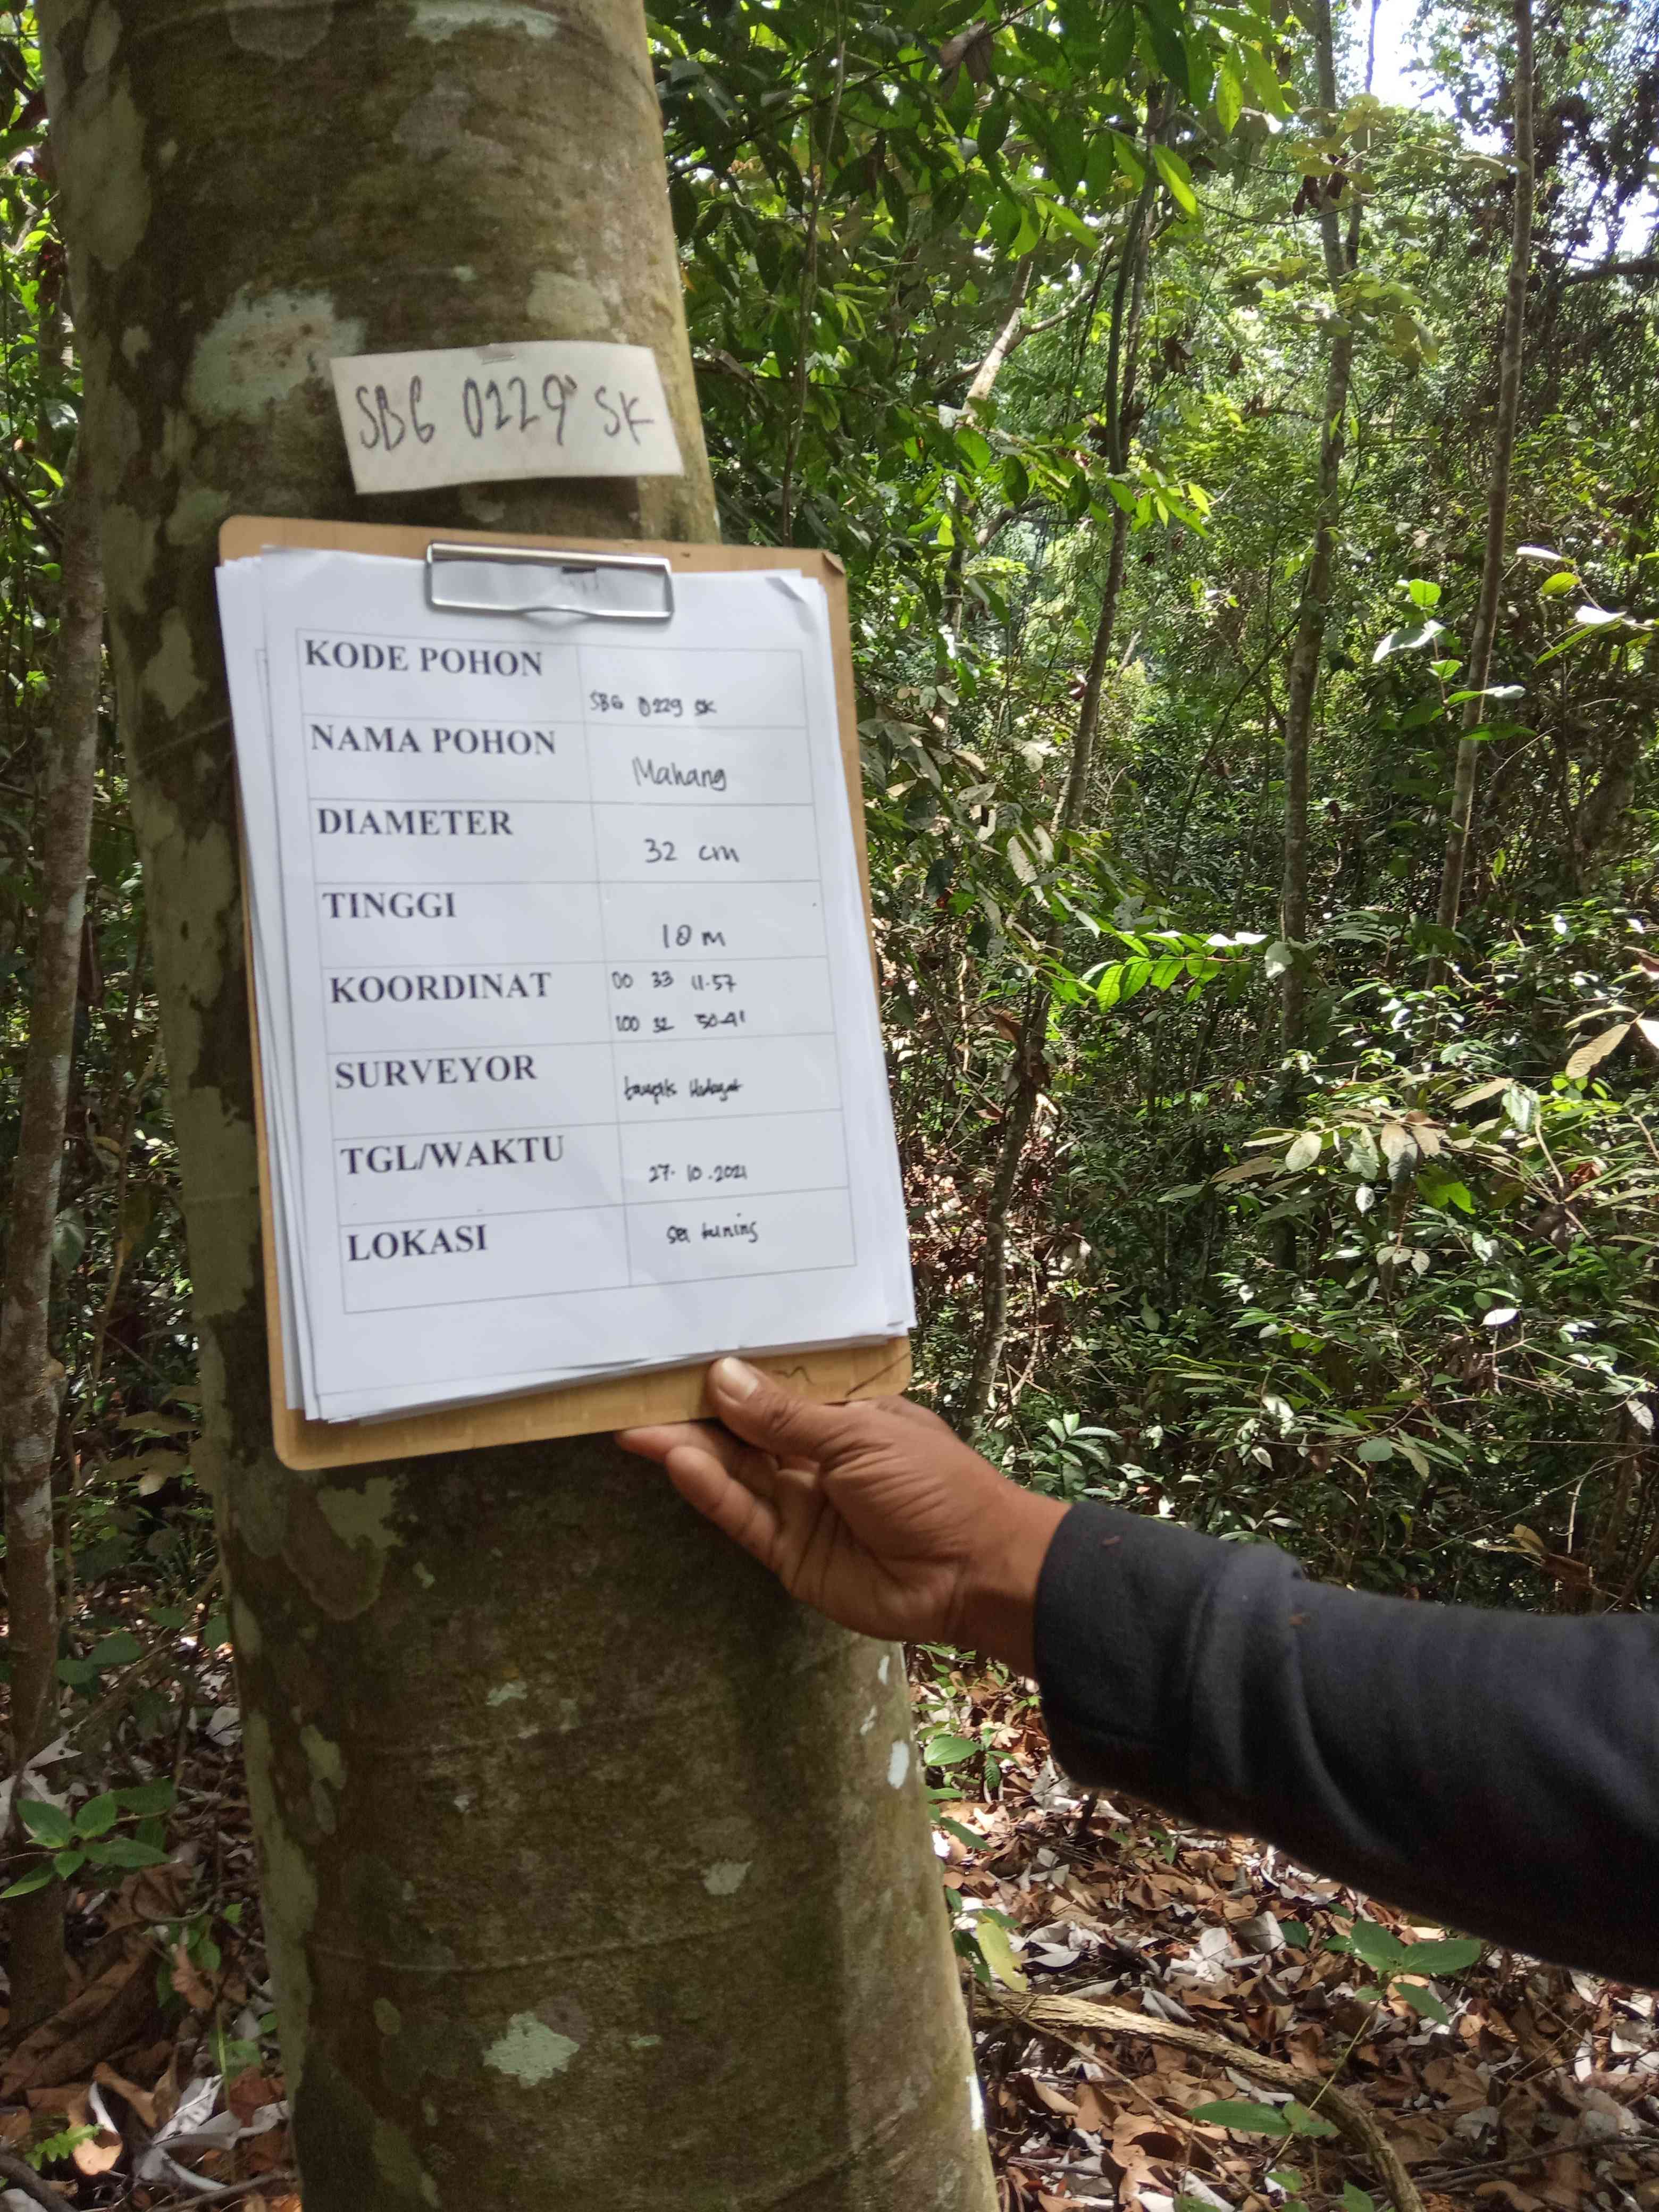 SBG 0229 SK
KODE POHON
SBG 0229 SK
NAMA POHON
Mahang
DIAMETER
32 cm
TINGGI
10 m
KOORDINAT
00 33 11.57
100 32 50.41
SURVEYOR
Hidayat
TGL/WAKTU
27.10.2021
LOKASI
sei kuning